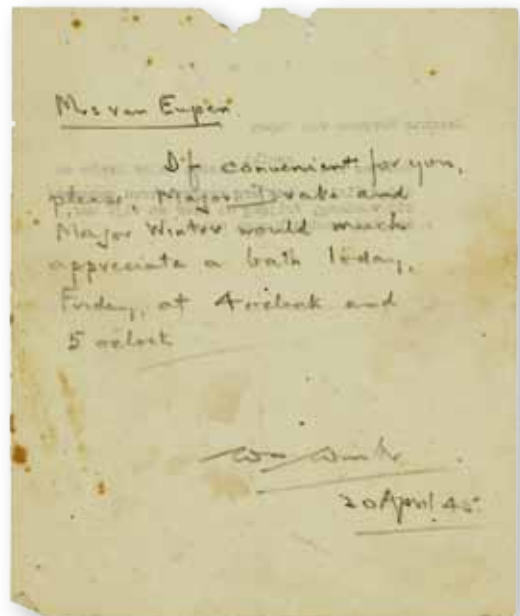 Mrs van Eupen.
If convenient for you,
please, Major Drake and
Major Winter would much
appreciate a bath today,
Friday, at 4 oclock and
5 oclock
20 April 45